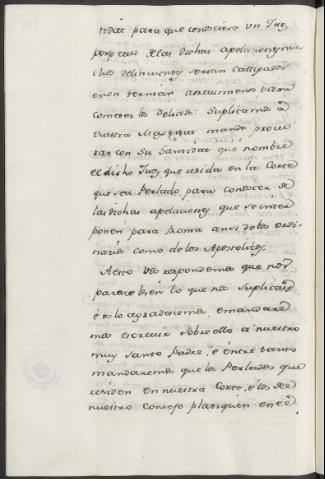 tidat para que conosciese un Juez,
porque
de las dichas apelaciones mu
chos delinquentes serian castigados
e non ternian atrevimiento para
cometer los delictos: Suplicamos á
vuestra Magestad mande procu
rar con su Santidat que nombre
el dicho Juez que resida en la Corte
que sea Perlado, para conoscer de
las dichas apelaciones que se inter
ponen para Roma ansi de los ordi
narios como de los Apostolicos.
A esto vos respondemos que nos
paresce bien lo que nos suplicais
é os lo agradescemos, e mandare
mos escrevir sobre ello a nuestro
muy Santo Padre, é entre tanto
mandaremos que los Perlados que
residen en nuestra Corte, é los de
nuestro consejo platiquen en